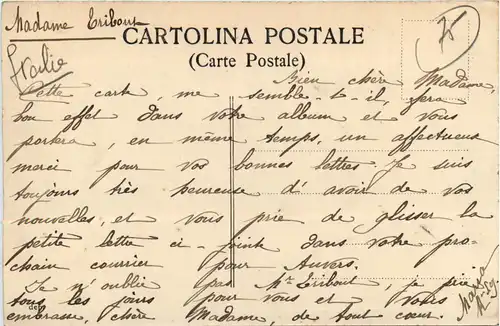 Madame Eribout
CARTOLINA POSTALE
(Carte Postale)
Italie
Bien chère Madame,
Cette carte, me semble-t-il, fera
bon effet dans votre album et vous
portera, en même temps, un affectueux
merci pour vos bonnes lettres. Je suis
toujours très heureuse d'avoir de vos
nouvelles, et vous prie de glisser la
petite lettre ci-jointe dans votre pro-
chain courrier pour Anvers.
Je n'oublie pas Mr Eribout, je prie
tous les jours pour vous et vous
embrasse, chère Madame, de tout cœur.
Maria